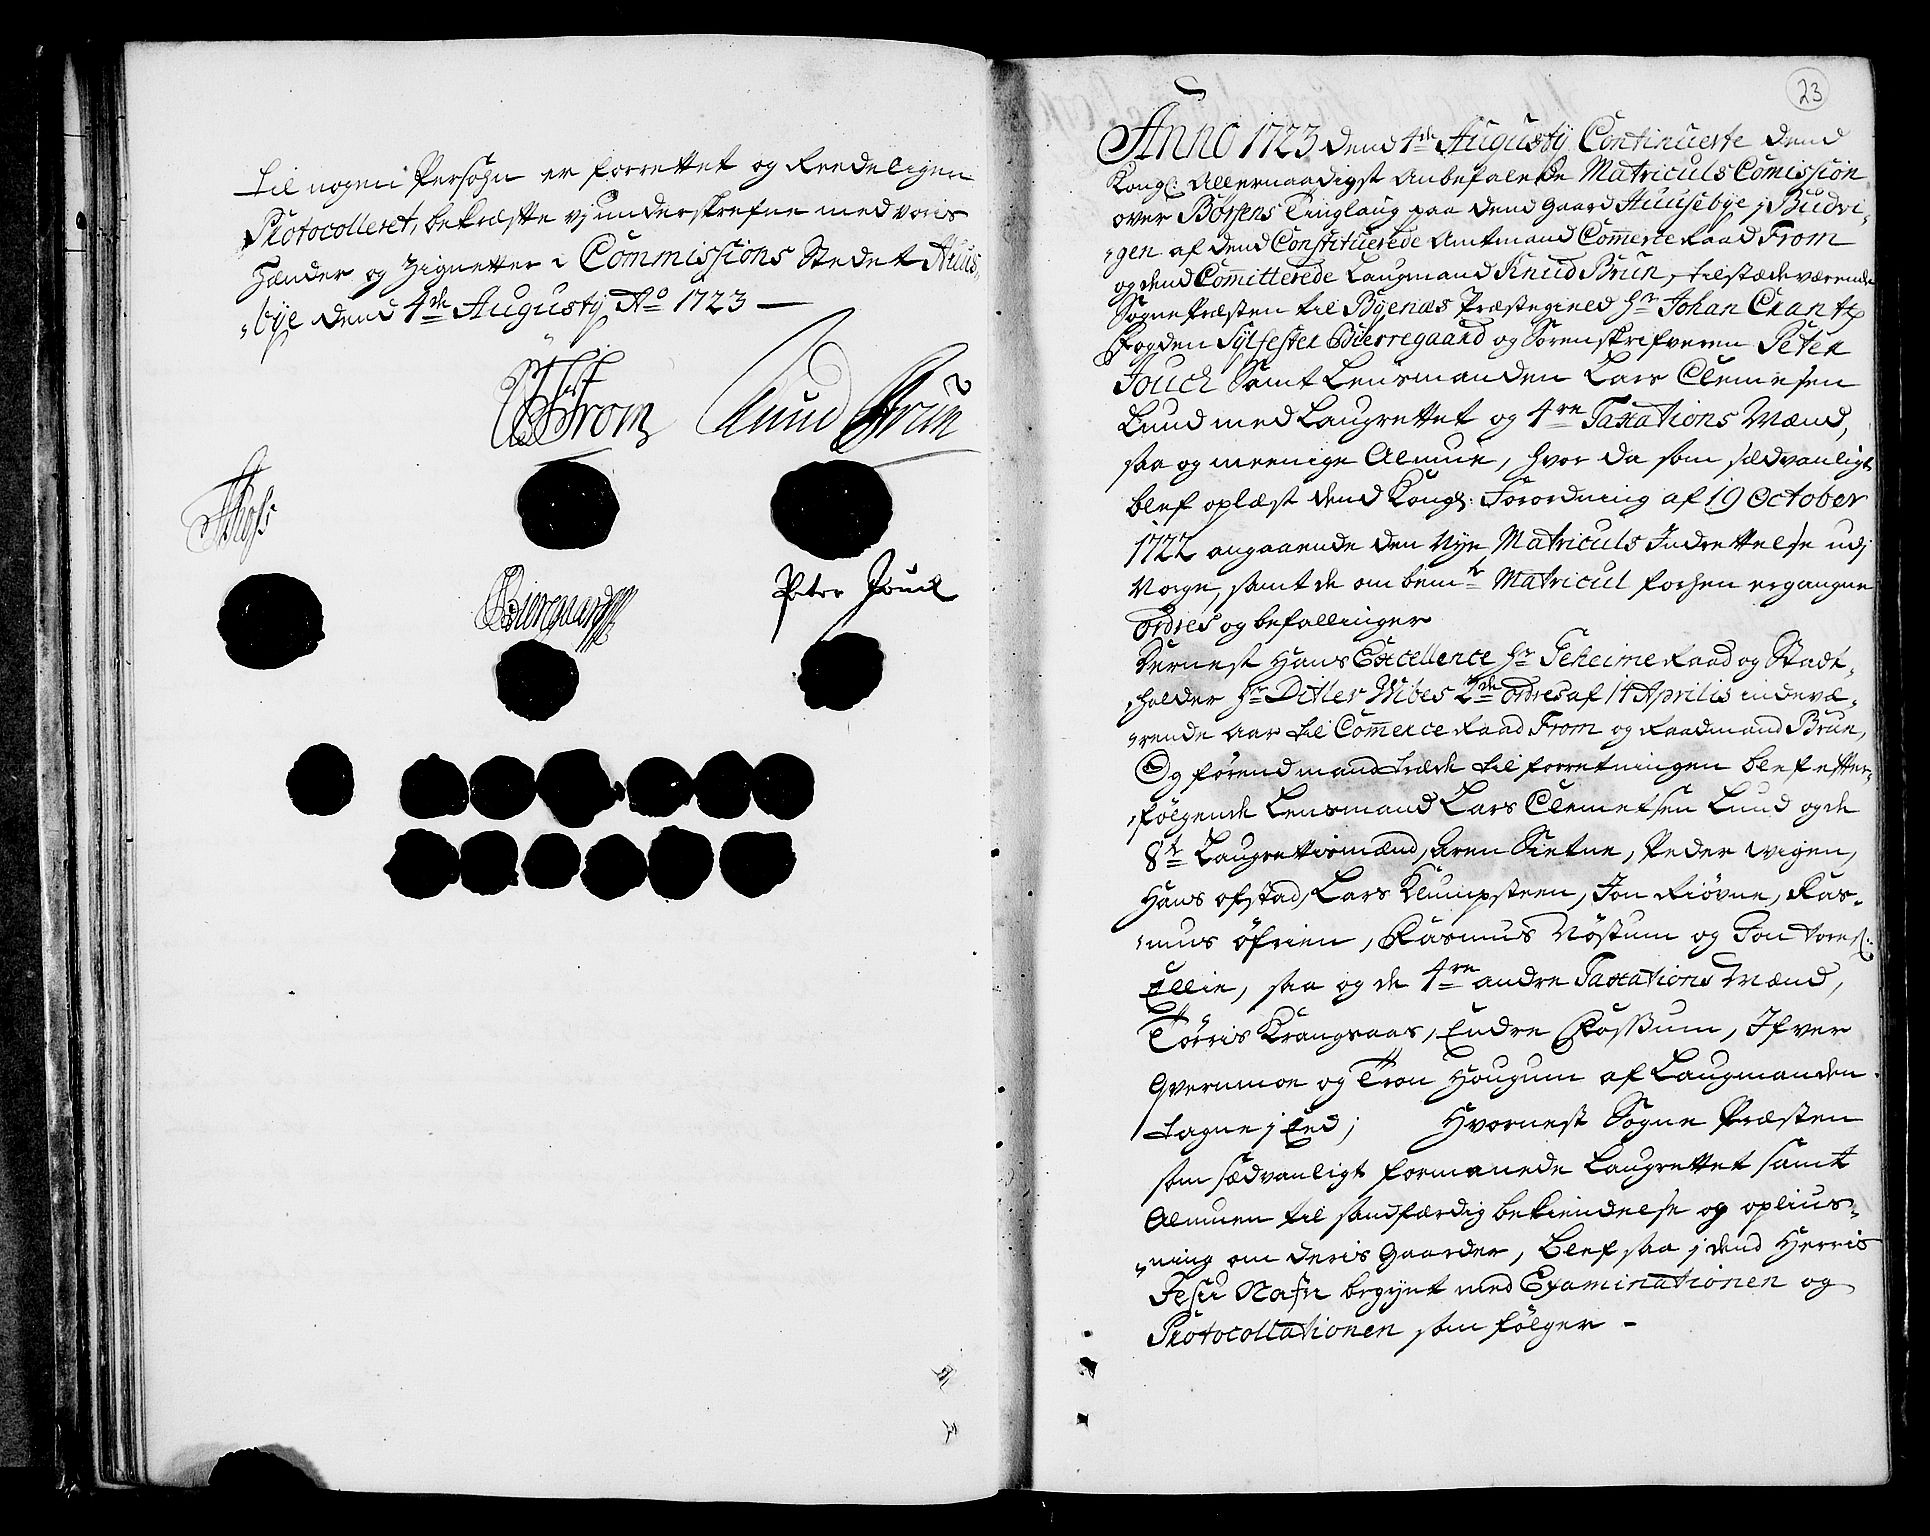 til nogen Persohn er forrettet og Reedeligen
Protocolleret, bekræfte vj underskrefne med voris
Hænder og Zignetter i Commissions Stedet Huus-
bye dend 4de Augustj Ao 1723 —
From Knud Brun
Peter Juul
23
Anno 1723 dend 4de Augustj Continuerte dend
Kongl: Allernaadigst Anbefalede Matriculs Comission
over Børsens Tinglaug paa dend Gaard Huusebye j Budvi-
gen af dend Constituerede Amtmand Comerce Raad From
og dend Comitterede Laugmand Knud Brun, tilstædeværende
Sogne Præsten til Byenæs Præstegield Hr Johan Crantz
Fogden Sylfester Bierregaard og Sorenskrifveren Peter
Juul samt Lensmanden Lars Clemesen
Lund med Laugrettet og 4re Taxations Mænd,
saa og meenige Almue, hvor da som sædvanligt
blef oplæst dend Kongl: Forordning af 19 October
1722 angaaende den Nye Matriculs Indrettelse udj
Norge, samt de om bemte Matricul forhen ergangne
Ordres og befallinger
Dernest Hans Excellence Hr Geheime Raad og Stadt-
holder Hr Ditlef Wibes 2de Ordres af 14 Aprilis indevæ-
rende Aar til Comerce Raad From og Raadmand Brun,
Og førend mand træde til forretningen blef efter-
følgende Lensmand Lars Clemetsen Lund og de
8te Laugrettismænd, Aren Sietne, Peder Wigen,
Hans Ofstad, Lars Klumpsteen, Jon Riøvne, Ras-
mus Øfrien, Rasmus Nøstum og Jon Tores:
Ellie, saa og de 4re andre Taxations Mænd,
Tørris Krangsaas, Endre Fossum, Ifver
Qvernmoe og Tron Hougum af Laugmanden
tagne j Eed; Hvornest Sogne Præsten
som sædvanligt formanede Laugrettet samt
Almuen til sandfærdig bekiendelse og oplius-
ning om deris Gaarder, blef saa j dend Herris
Jesu Nafn begynt med Examinationen og
Protocollationen som følger –